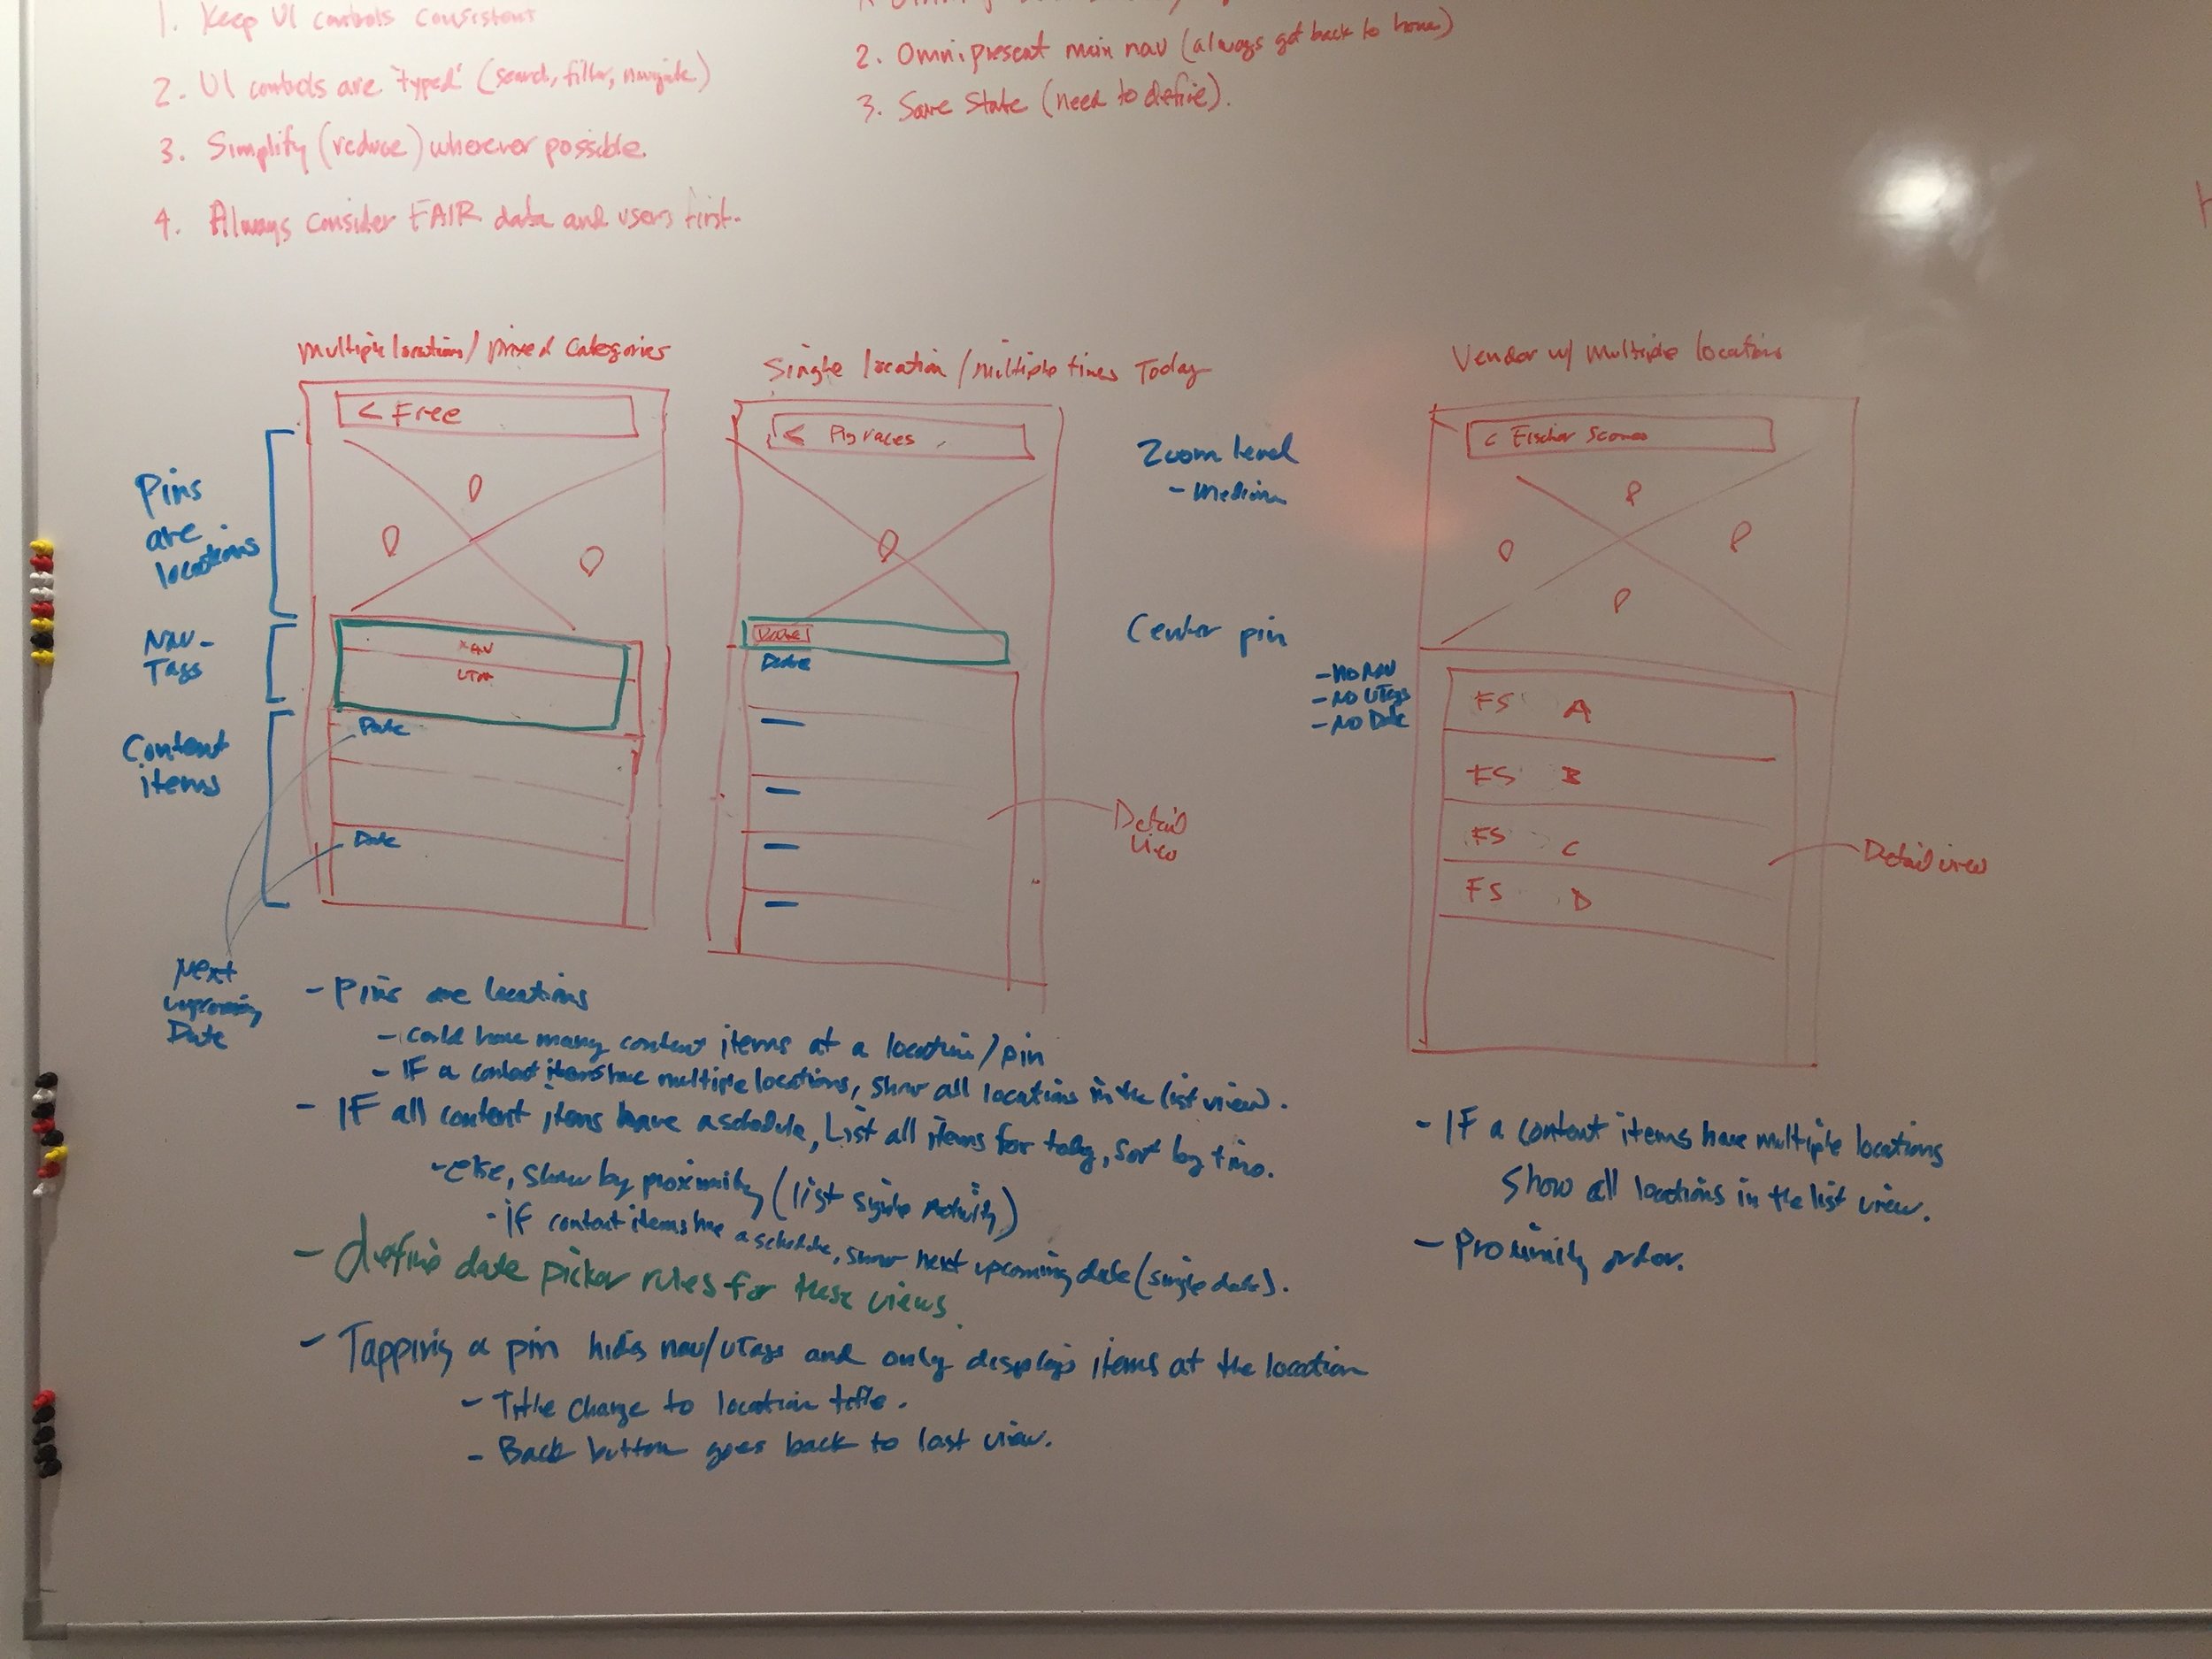 1. Keep UI controls consistent
2. UI controls are "typed" (search, filter, navigate)
3. Simplify (reduce) wherever possible.
4. Always consider FAIR data and users first.
2. Omnipresent main nav (always get back to home)
3. Save State (need to define).
Multiple location/mixed categories
< Free
Pins
are
locations
Nav-
Tags
NAV
UTAG
Content
items
Date
Date
Next
upcoming
Date
Single location/multiple times Today
< Pig races
Zoom level
- Medium
Center pin
Date
Detail
View
Vendor w/ Multiple locations
< Fischer Scones
- No Nav
- No UTags
- No Date
FS A
FS B
FS C
FS D
Detail view
- Pins are locations
- Could have many content items at a location/pin
- IF a content items have multiple locations, show all locations in the list view).
- IF all content items have a schedule, List all items for today, sort by time.
- else, show by proximity (list single Activity)
- if content items have a schedule, show next upcoming date (single date).
- define date picker rules for these views.
- Tapping a pin hides nav/utags and only displays items at the location
- Title change to location title.
- Back button goes back to last view.
- IF a content items have multiple locations
Show all locations in the list view.
- Proximity order.